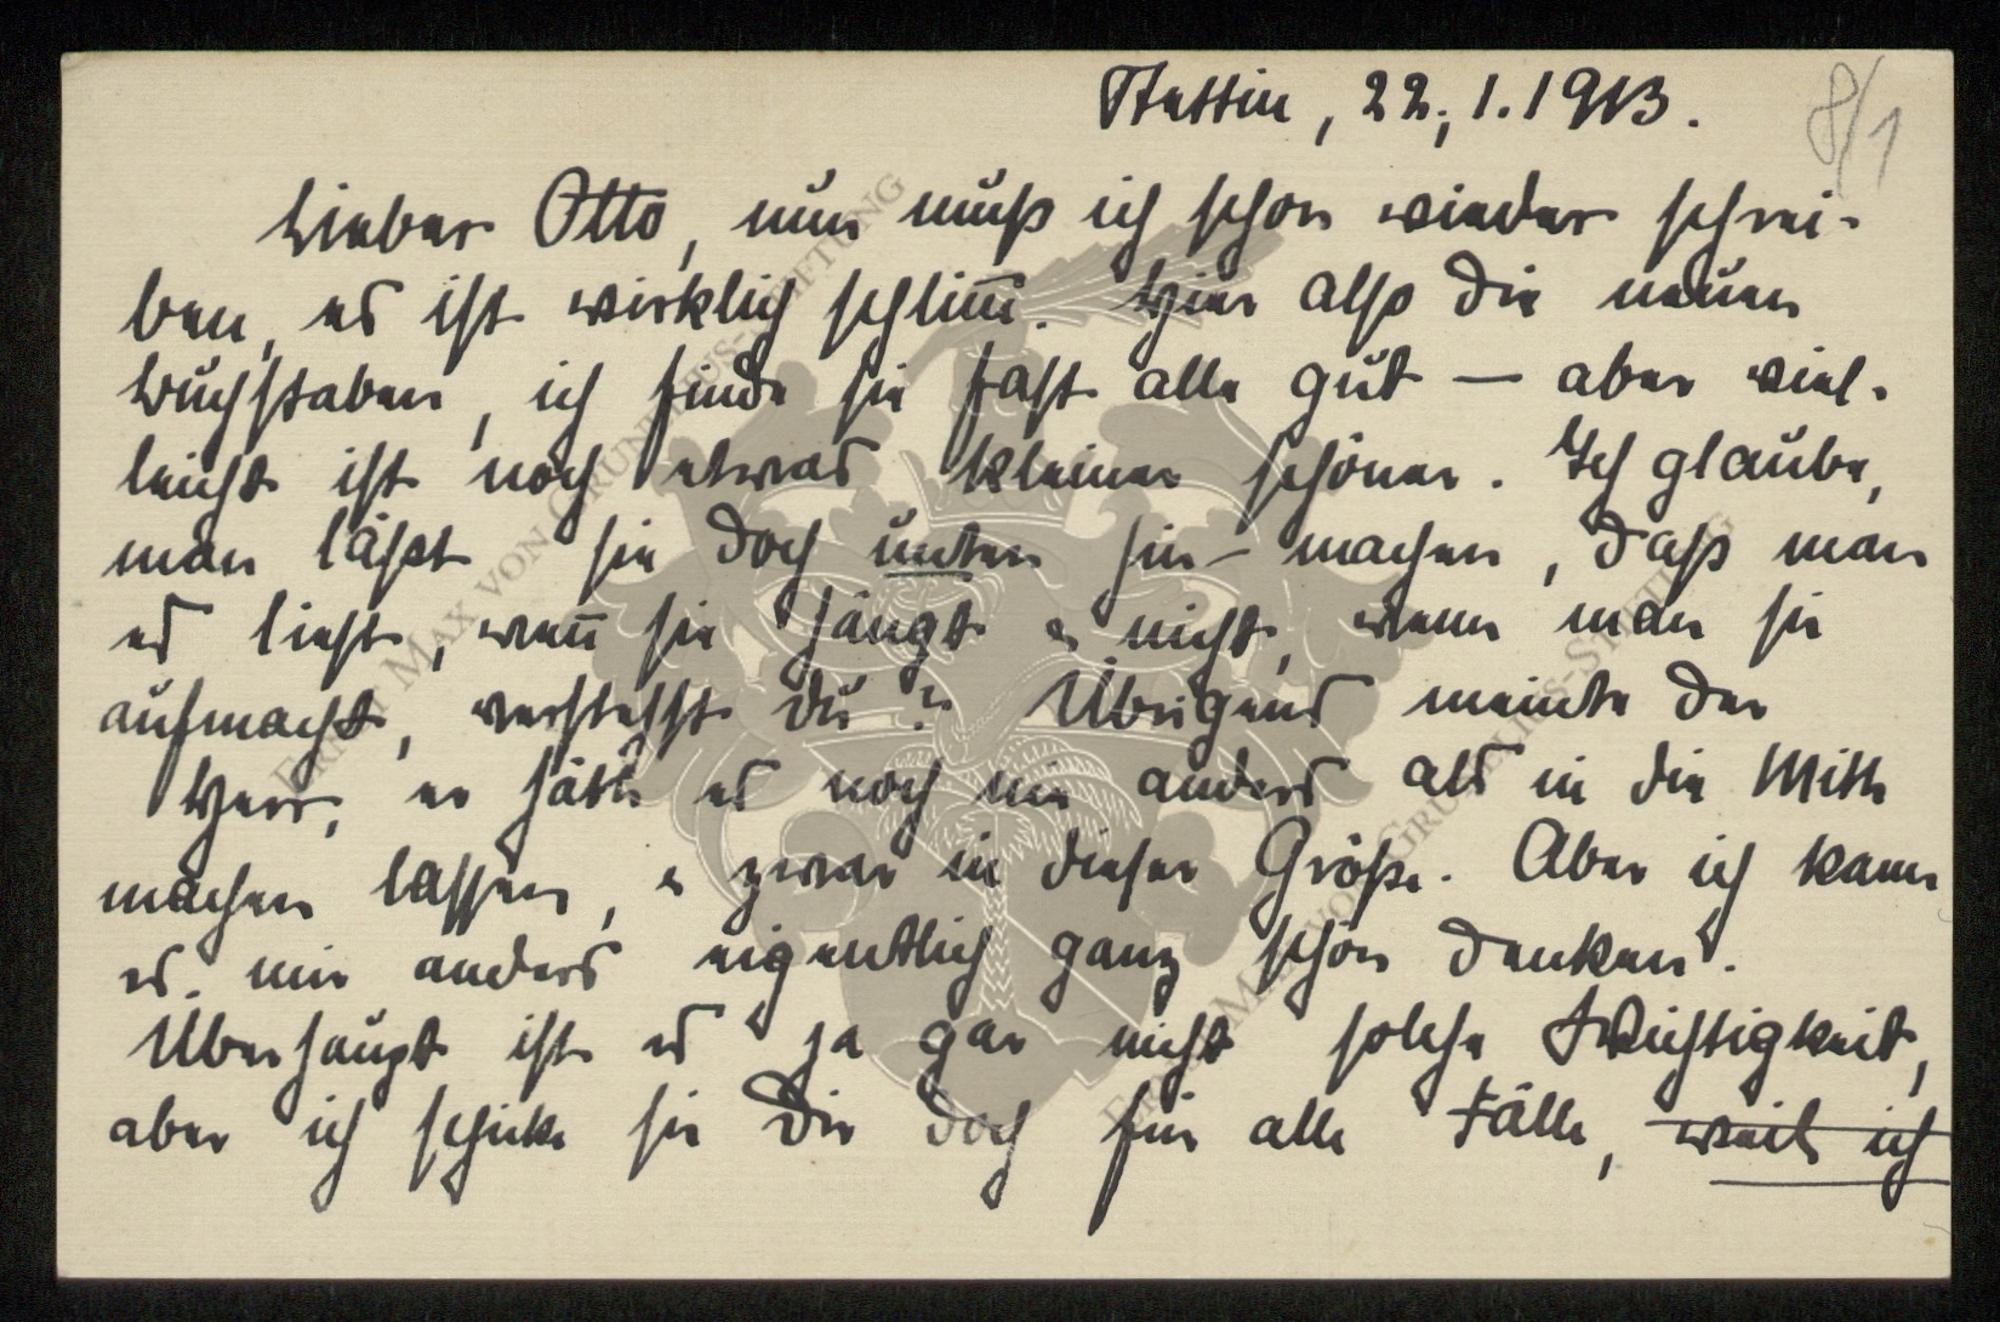 Stettin, 22. 1. 1913.
8/1
Lieber Otto, nun muß ich schon wieder schrei-
ben, es ist wirklich schlim̄. Hier also die neuen
Buchstaben, ich finde sie fast alle gut — aber viel-
leicht ist noch etwas kleiner schöner. Ich glaube,
man läßt sie doch unten hin-machen, daß man
es liest, wen̄ sie hängt & nicht, wenn man sie
aufmacht, verstehst du? Übrigens meinte der
Herr, er hätte es noch nie anders als in die Mitte
machen lassen, & zwar in dieser Größe. Aber ich kann
es mir anders eigentlich ganz schön denken.
Überhaupt ist es ja gar nicht solche Wichtigkeit,
aber ich schicke sie Dir doch für alle Fälle, weil ich
ERNST MAX VON GRUNELIUS-STIFTUNG
ERNST MAX VON GRUNELIUS-STIFTUNG